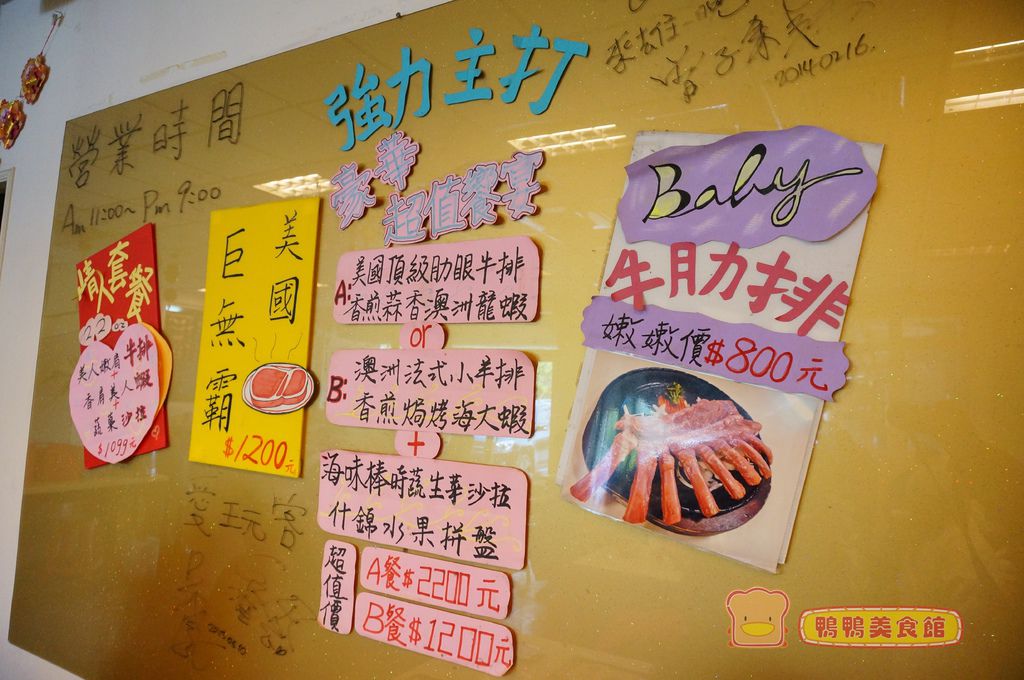 營業時間
Am 11:00~Pm 9:00
強力主打
2014.02.16.
情人套餐
22oz
美人嫩肩牛排
+
香肩美人蝦
+
蔬菓沙拉
$1099元
美國
巨無霸
$1200元
豪華
超值饗宴
A:美國頂級肋眼牛排
香煎蒜香澳洲龍蝦
or
B:澳洲法式小羊排
香煎焗烤海大蝦
+
海味棒時蔬生菜沙拉
什錦水果拼盤
超值價
A餐$2200元
B餐$1200元
Baby
牛肋排
嫩嫩價$800元
愛玩客
鴨鴨美食館